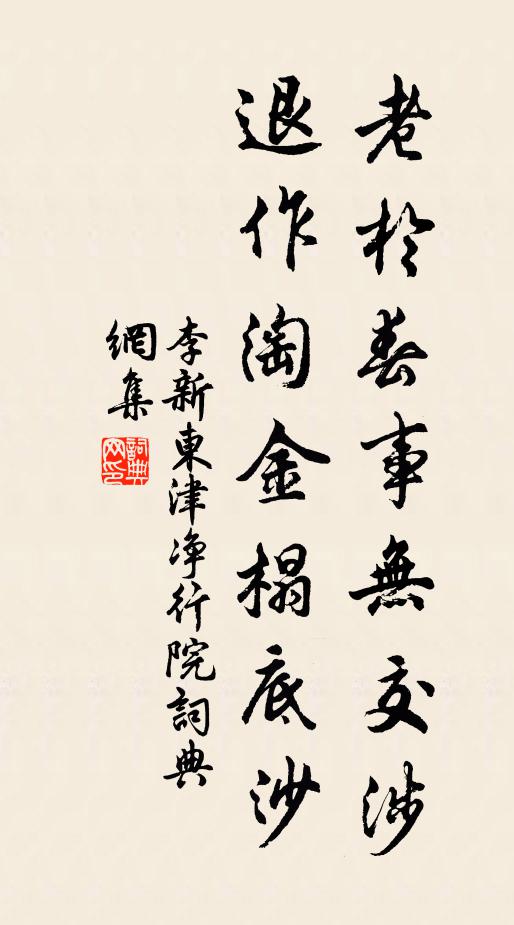 老於春事無交涉
退作淘金榻底沙
李新東津净行院詞典
網集
詞典網印